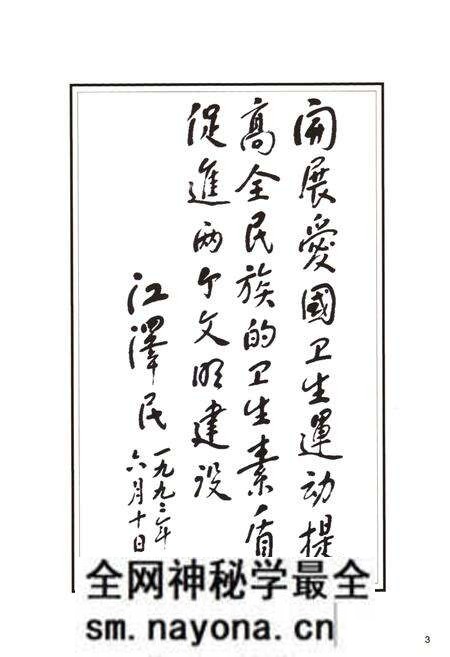 開展愛國卫生運动提
高全民族的卫生素质
促進两个文明建设
江澤民
一九九二年
六月十日
全网神秘学最全
sm.nayona.cn
3